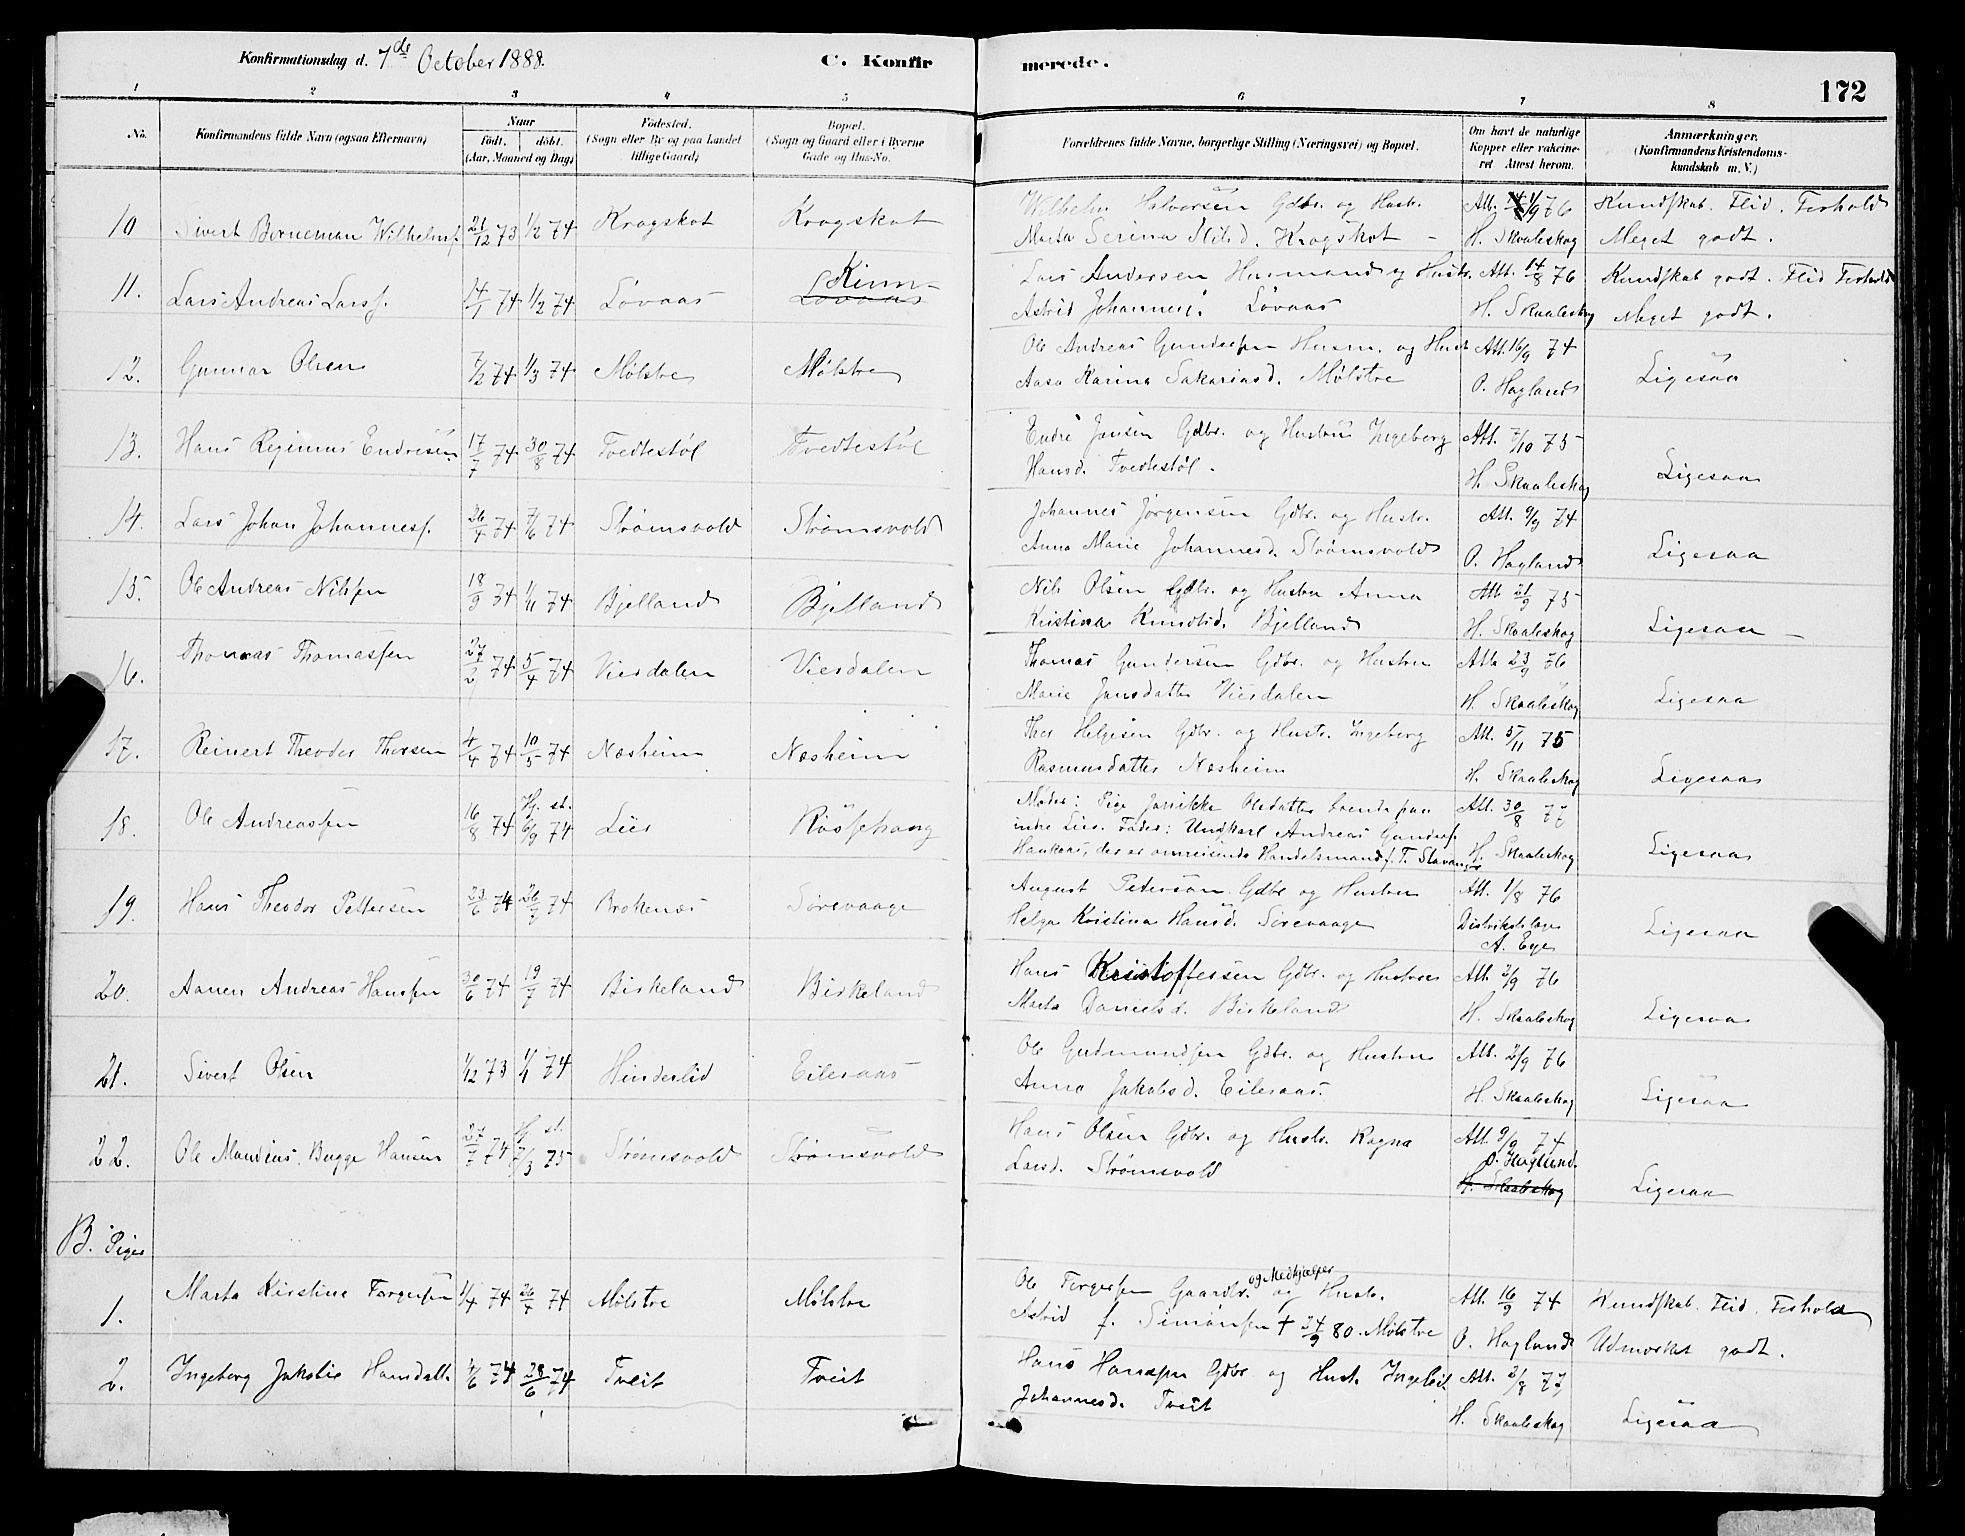 Konfirmationsdag d. 7de October 1888. C. Konfir merede. 172
1 2 3 4 5 6 7 8
No. Konfirmandens fulde Navn (ogsaa Efternavn) Naar födt. döbt. (Aar, Maaned og Dag) Födested. (Sogn eller By og paa Landet tillige Gaard) Bopæl. (Sogn og Gaard eller i Byerne Gade og Hus-No. Forældrenes fulde Navne, borgerlige Stilling (Næringsvei) og Bopæl. Om havt de naturlige Kopper eller vakcineret Attest herom. Anmærkninger. (Konfirmandens Kristendomskundskab m. V.)
10 Sivert Borneman Wilhelms. 21/12 73 1/2 74 Kragskot Kragskot Wilhelm Halvorsen Gdbr. og Hustr. Att. 1/9 76 Kundskab. Flid. Forhold
Marta Serina Nilsd. Kragskot – H. Skaaleskog Meget godt.
11. Lars Andreas Larss. 14/1 74 1/2 74 Løvaas Kinn Løvaas Lars Andersen Husmand og Hustr. Att. 14/8 76 Kundskab godt. Flid Forhold
Astrid Johannesd. Løvaas H. Skaaleskog Meget godt.
12. Gunnar Olsen 7/2 74 1/3 74 Mølstre Mølstre Ole Andreas Gundersen Husm. og Hust Att. 16/9 74
Aasa Karina Sakariasd. Mølstre O. Hagland Ligesaa
13. Hans Reginius Endresen 17/7 74 30/8 74 Tvedtestøl Tvedtestøl Endre Jansen Gdbr. og Hustru Ingeborg Att. 7/10 75
Hansd. Tvedtestøl. H. Skaaleskog Ligesaa
14. Lars Johan Johanness. 26/4 74 7/6 74 Strømsvold Strømsvold Johannes Jørgensen Gdbr. og Hustr. Att. 9/9 74
Anna Marie Johannesd. Strømsvold O. Hagland Ligesaa
15. Ole Andreas Nilssen 18/9 74 1/11 74 Bjelland Bjelland Nils Olsen Gdbr. og Hustru Anna Att 21/9 75
Kristina Knudtsd. Bjelland H. Skaaleskog Ligesaa –
16. Thomas Thomassen 27/2 74 5/4 74 Viesdalen Viesdalen Thomas Gundersen Gdbr. og Hustru Att. 23/9 76
Marie Jansdatter Viesdalen H. Skaaleskog Ligesaa
17. Reinert Theodor Thorsen 4/4 74 10/5 74 Næsheim Næsheim Thor Helgesen Gdbr. og Hustr. Ingeborg Att. 5/11 75
Rasmusdatter Næsheim H. Skaaleskog Ligesaa
18. Ole Andreassen 16/8 74 Hj. st. 6/9 74 Lier Moder: Pige Jannikke Olsdatter boende paa Att. 30/8 77
indre Lier. Fader: Ungkarl Andreas Gunders.
Haukaas, der er omreisende Handelsmand f. T. Stavanger H. Skaaleskog Ligesaa
19. Hans Theodor Pettersen 23/6 74 26/7 74 Brokenæs Sørevaage August Petersen Gdbr og Hustru Att. 1/8 76
Helga Kristina Hansd. Sørevaage Distriktslæge A. Eye Ligesaa
20. Aanen Andreas Hanssen 30/6 74 19/7 74 Birkeland Birkeland Hans Kristoffersen Gdbr. og Hustru Att. 2/9 76
Marta Danielsd. Birkeland H. Skaaleskog Ligesaa
21. Sivert Olsen 1/12 73 1/1 74 Hinderlid Eileraas Ole Gudmundsen Gdbr. og Hustru Att. 2/9 76
Anna Jakobsd. Eileraas. H. Skaaleskog Ligesaa
22. Ole Mandius Bugge Hansen 27/7 74 Hj st. 7/3 75 Strømsvold Strømsvold Hans Olsen Gdbr. og Hustr. Ragna Att. 9/9 74
Larsd. Strømsvold O. Hagland. H. Skaaleskog Ligesaa
B. Piger
1. Marta Kirstine Torgersen 1/4 74 26/4 74 Mølstre Mølstre Ole Torgersen Gaardbr. og Medhjelper og Hustr. Att. 16/9 74 Kundskab. Flid. Forhold
Astrid f. Simonsen † 24/9 80. Mølstre O. Hagland Udmærket godt.
2. Ingeborg Jakobie Hansdatt. 4/6 74 28/6 74 Tveit Tveit Hans Hanssen Gdbr og Hust. Ingeleiv Att. 2/8 77
Johannesd. Tveit H. Skaaleskog Ligesaa